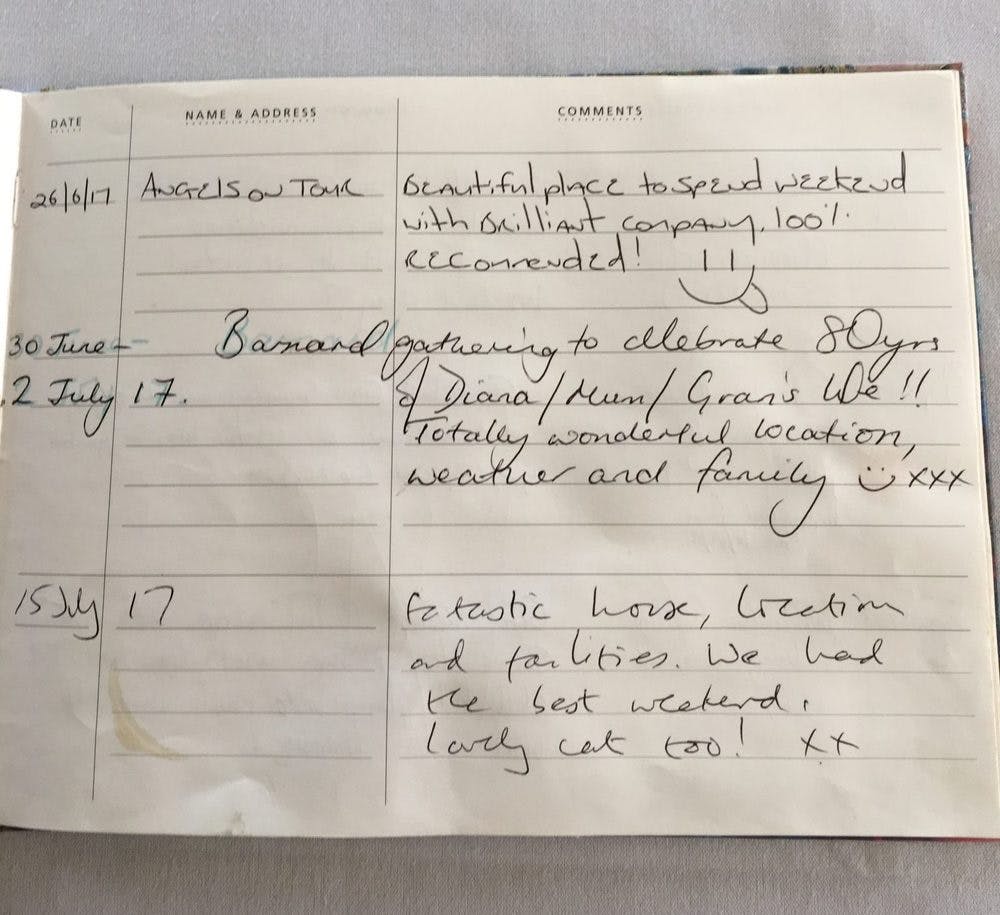 DATE NAME & ADDRESS COMMENTS
26/6/17 ANGELS ON TOUR Beautiful place to spend weekend
with Brilliant company. 100%
Recommended!
30 June - Barnard gathering to celebrate 80yrs
2 July 17. of Diana/Mum/Gran's life!!
Totally wonderful location,
weather and family xxx
15 July 17 Fatastic house, location
and facilities. We had
the best weekend.
Lovely cat too! xx